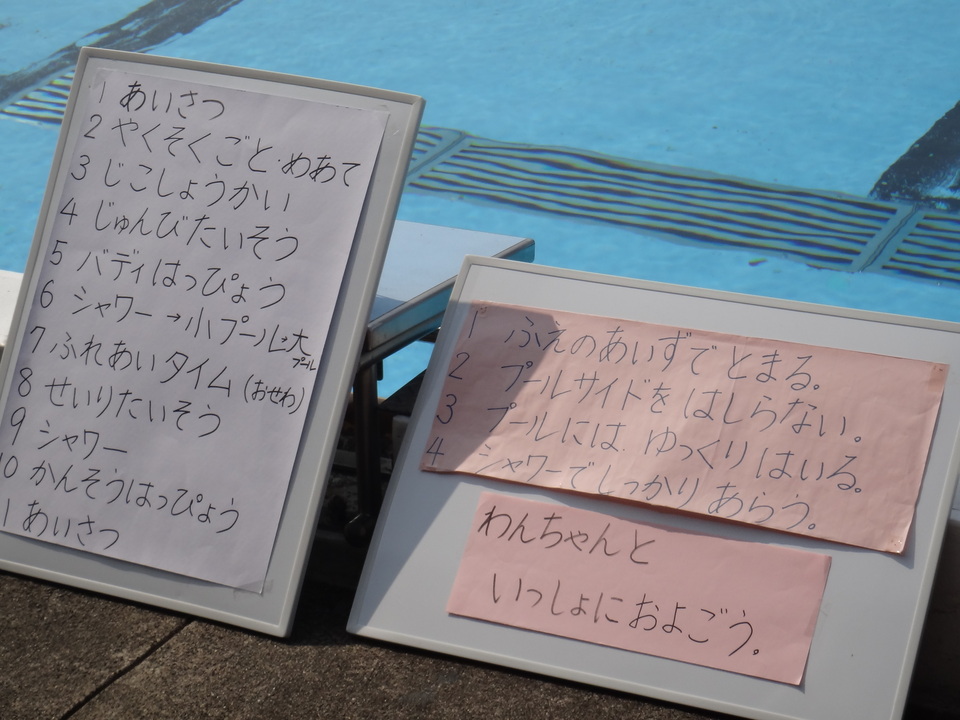 1 あいさつ
2 やくそくごと・めあて
3 じこしょうかい
4 じゅんびたいそう
5 バディはっぴょう
6 シャワー→小プール・大プール
7 ふれあいタイム(おせわ)
8 せいりたいそう
9 シャワー
10 かんそうはっぴょう
1 あいさつ
1 ふえのあいずでとまる。
2 プールサイドをはしらない。
3 プールには、ゆっくりはいる。
4 シャワーでしっかりあらう。
わんちゃんと
いっしょにおよごう。